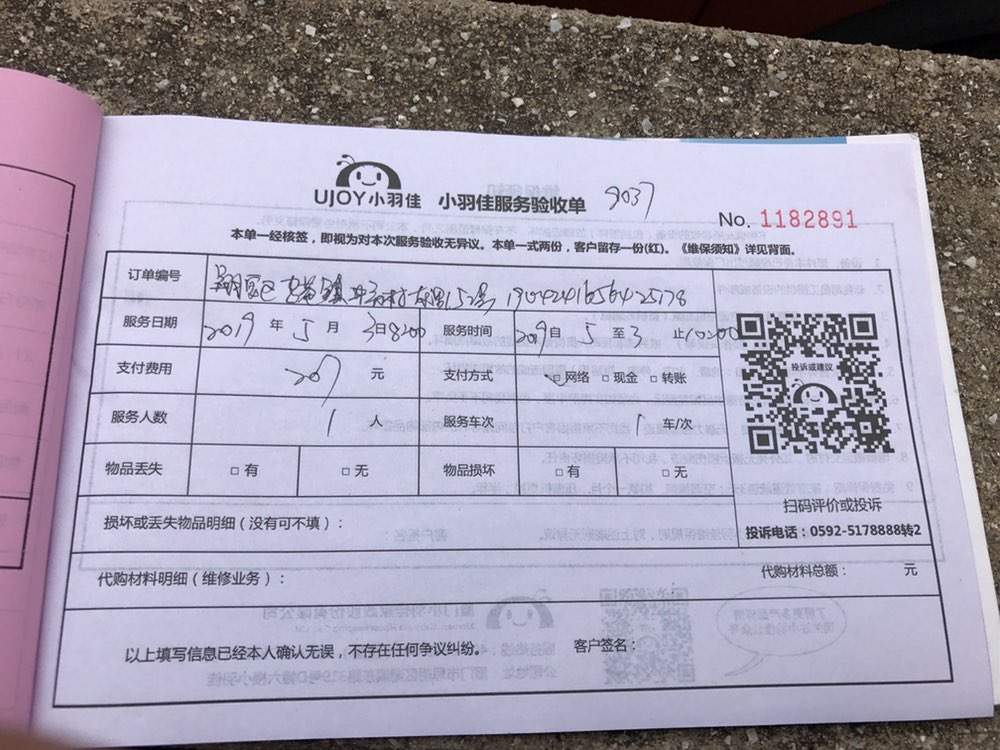 UJOY小羽佳 小羽佳服务验收单 9037
No. 1182891
本单一经核签，即视为对本次服务验收无异议。本单一式两份，客户留存一份(红)。《维保须知》详见背面。
订单编号 翔安区 镇 村 152号 190424165642578
服务日期 2019 年 5 月 3日8200 服务时间 2019自 5 至3 止10200
支付费用 207 元 支付方式 网络 □ 现金 □ 转账
服务人数 1 人 服务车次 1 车/次
物品丢失 □ 有 □ 无 物品损坏 □ 有 □ 无
投诉或建议
扫码评价或投诉
投诉电话：0592-5178888转2
损坏或丢失物品明细（没有可不填）：
代购材料明细（维修业务）： 代购材料总额： 元
以上填写信息已经本人确认无误，不存在任何争议纠纷。 客户签名：